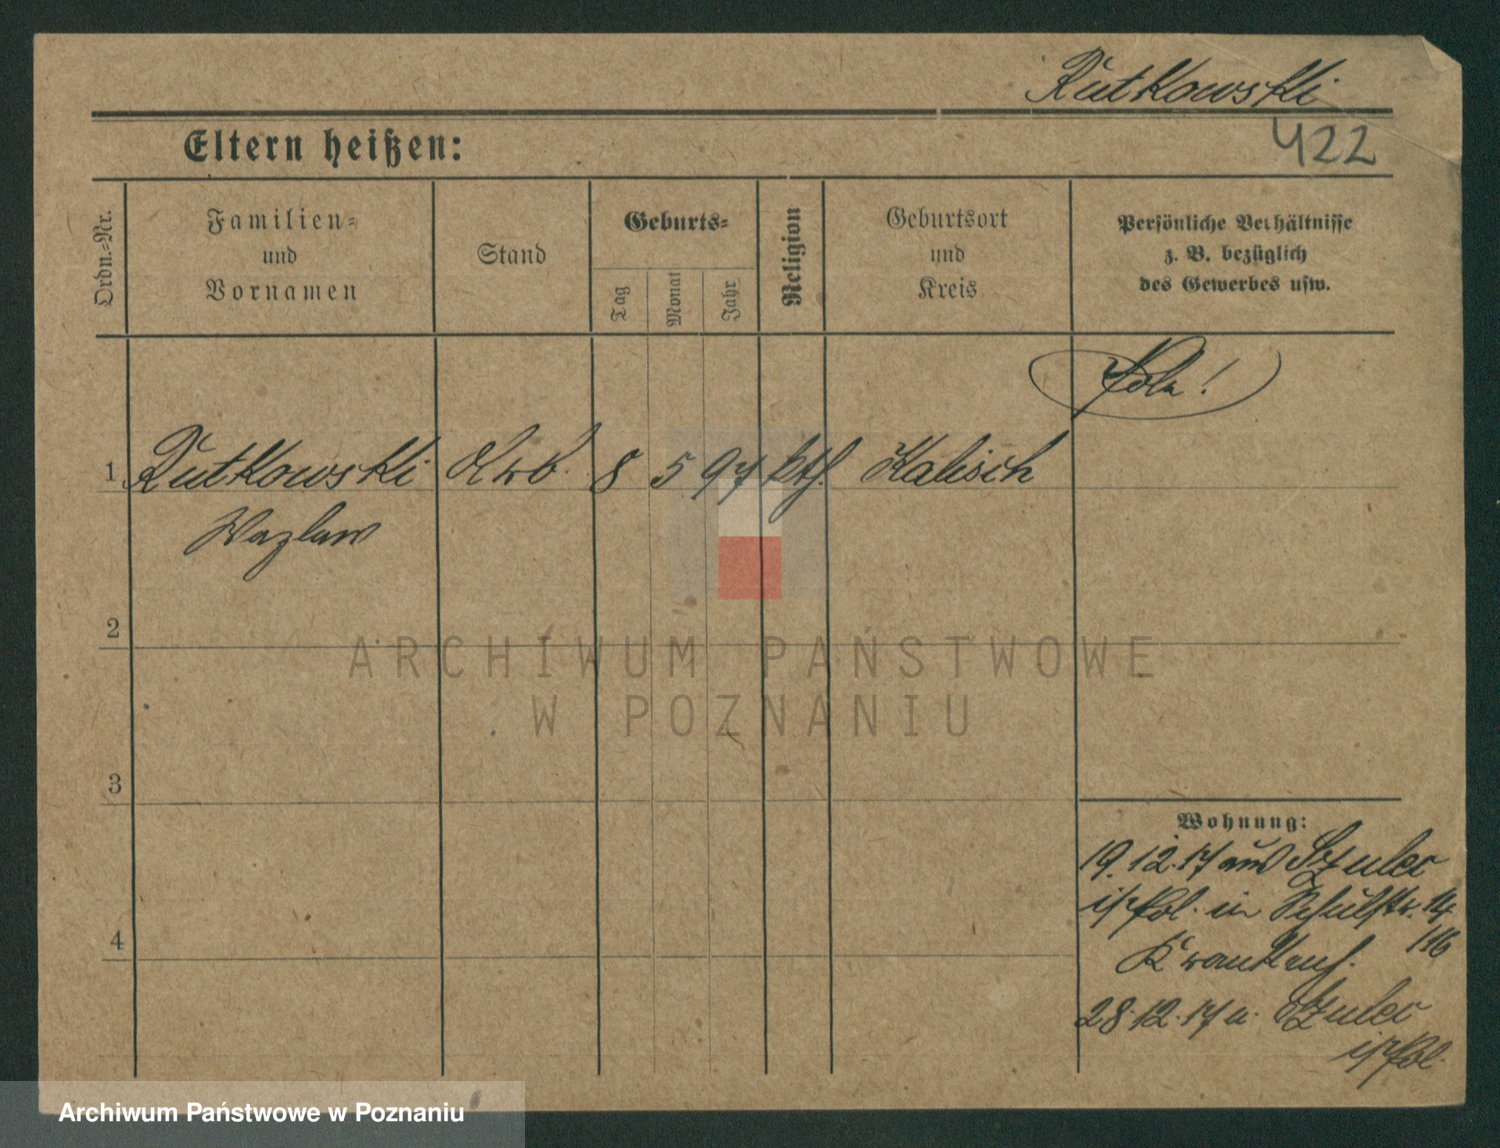 Rutkowski
422
Eltern heißen:
Ordn.-Nr.
Familien-
und
Vornamen
Stand
Geburts-
Tag
Monat
Jahr
Religion
Geburtsort
und
Kreis
Persönliche Verhältnisse
z. B. bezüglich
des Gewerbes usw.
Pole!
1 Rutkowski 8 5 97 kth. Kalisch
Wazlaw
2
ARCHIWUM PAŃSTWOWE
W POZNANIU
3
Wohnung:
19.12.17 aus Szuler
i/Pol. in Schulstr. 14
/16
Krankenh.
4
28.12.17 n. Szuler
i/Pol.
Archiwum Państwowe w Poznaniu